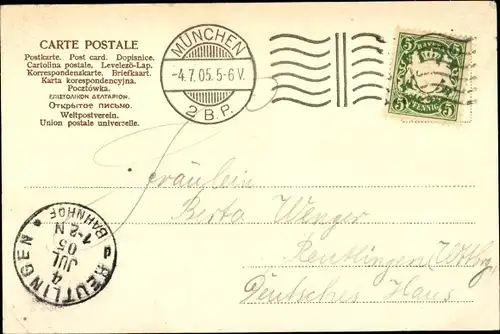 CARTE POSTALE
Postkarte. Post card. Dopisnice.
Cartolina postale, Levelező-Lap.
Korrespondenzkarte. Briefkaart.
Karta korespondencyjna.
Pocztówka.
ΕΠΙΣΤΟΛΙΚΟΝ ΔΕΛΤΑΡΙΟΝ.
Открытое письмо.
Weltpostverein.
Union postale universelle.
MÜNCHEN
-4.7.05.5-6 V.
2 B.P.
BAYERN
5 5
5 PFENNIG 5
Fräulein
Berta Wenger
Reutlingen (Wttbrg
Deutsches Haus
REUTLINGEN BAHNHOF
4
JUL
05
1-2 N